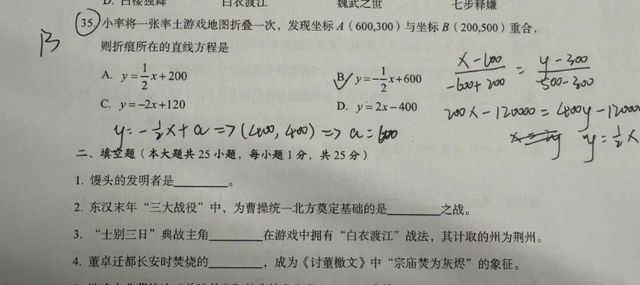 D. 白楼独舞 白衣渡江 魏武之世 七步释嫌
B 35. 小率将一张率土游戏地图折叠一次，发现坐标 A（600,300）与坐标 B（200,500）重合，
则折痕所在的直线方程是
A. y=1/2x+200 B. y=-1/2x+600
C. y=-2x+120 D. y=2x-400
x-600/-600+200 = y-300/500-300
200x-120000=400y-12000
y=-1/2x+a=>(400,400)=>a=600 y=1/2x
二、填空题（本大题共 25 小题，每小题 1 分，共 25 分）
1. 馒头的发明者是________。
2. 东汉末年“三大战役”中，为曹操统一北方奠定基础的是________之战。
3. “士别三日”典故主角________在游戏中拥有“白衣渡江”战法，其计取的州为荆州。
4. 董卓迁都长安时焚烧的________，成为《讨董檄文》中“宗庙焚为灰烬”的象征。